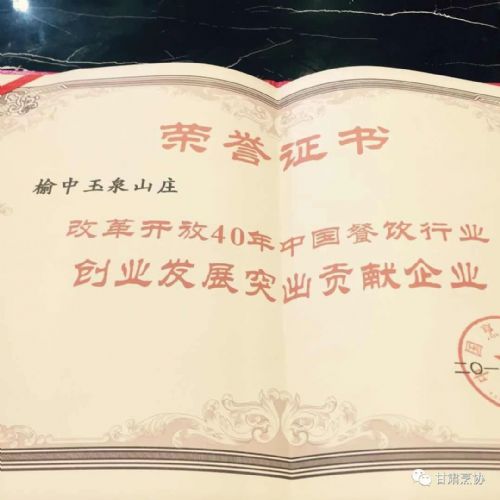 荣誉证书
榆中玉泉山庄
改革开放40年中国餐饮行业
创业发展突出贡献企业
中国烹
二〇一
甘肃烹协